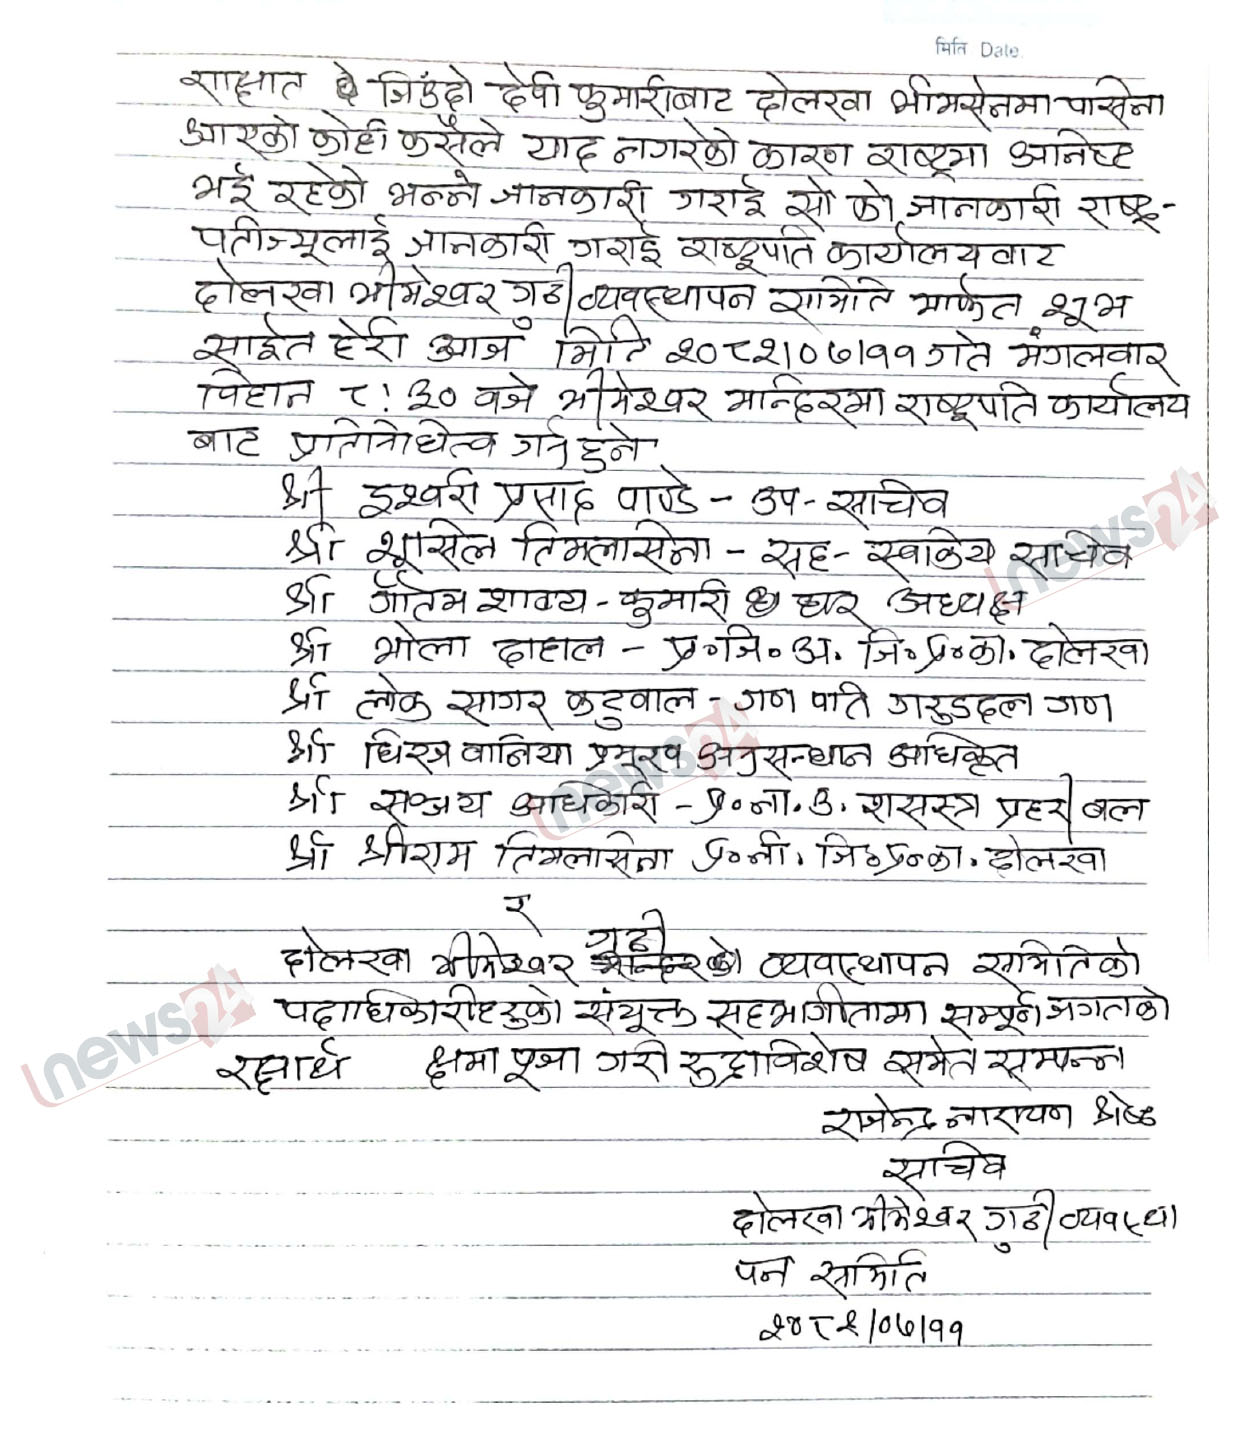 मिति Date
साक्षात दे जिउँदो देवी कुमारीबाट दोलखा भीमसेनमा पसिना
आएको कोही कसैले याद नगरेको कारण राष्ट्रमा अनिष्ट
भई रहेको भन्ने जानकारी गराई सो को जानकारी राष्ट्र-
पतीज्यूलाई जानकारी गराई राष्ट्रपति कार्यालयबाट
दोलखा भीमेश्वर गुठी व्यवस्थापन समिति मार्फत शुभ
साईत हेरी आज मिति २०८२।०७।११ गते मंगलवार
विहान ८:३० वजे भीमेश्वर मन्दिरमा राष्ट्रपति कार्यालय
बाट प्रतिनिधित्व गर्नु हुने
श्री इश्वरी प्रसाद पाण्डे - उप-सचिव
श्री शुसिल तिमलासिना - सह- स्वकिय सचिव
श्री गौतम शाक्य - कुमारी घर अध्यक्ष
श्री भोला दाहाल - प्र॰जि॰अ. जि॰प्र॰का. दोलखा
श्री लोक सागर कडुवाल - गण पति गरुडदल गण
श्री धिरज वानिया प्रमुख अनुसन्धान अधिकृत
श्री सञ्जय अधिकारी - प्र॰ना.उ. शसस्त्र प्रहरी बल
श्री श्रीराम तिमलासिना प्र॰नी. जि॰प्र॰का. दोलखा
र
गुठी
दोलखा भीमेश्वर मन्दिरको व्यवस्थापन समितिको
पदाधिकारीहरुको संयूक्त सहभागीतामा सम्पूर्न जगतको
रक्षार्थ क्षमा पूजा गरी रुद्राविशेष समेत सम्पन्न
राजेन्द्र नारायण श्रेष्ठ
सचिव
दोलखा भीमेश्वर गुठी व्यवस्था
पन समिति
२०८२/०७/११
news24
news24
news24